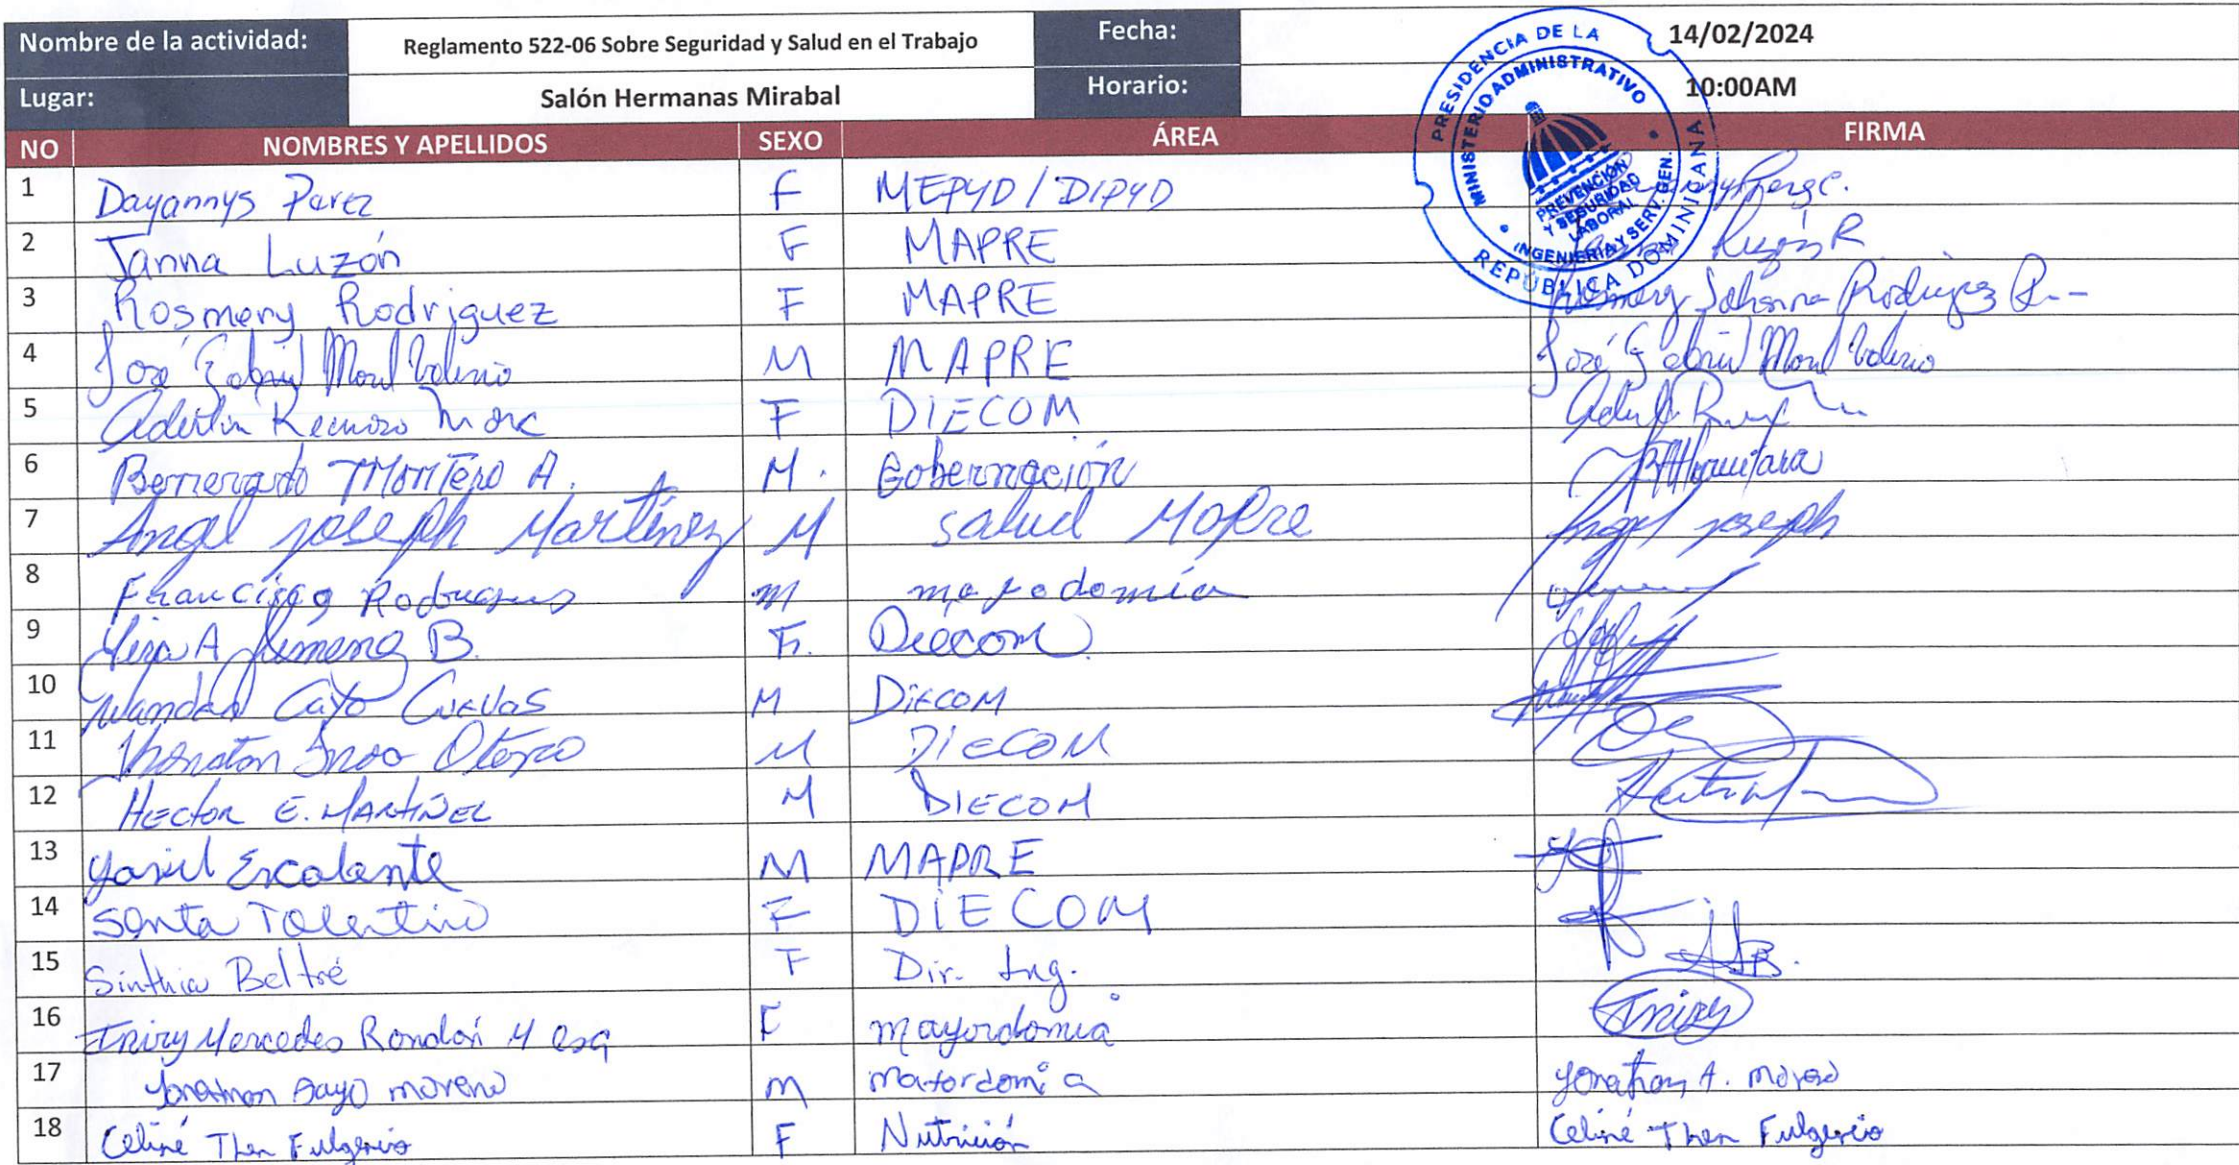 Nombre de la actividad: Reglamento 522-06 Sobre Seguridad y Salud en el Trabajo Fecha: 14/02/2024
Lugar: Salón Hermanas Mirabal Horario: 10:00AM
PRESIDENCIA DE LA REPÚBLICA DOMINICANA
MINISTERIO ADMINISTRATIVO
PREVENCIÓN
Y SEGURIDAD
LABORAL
INGENIERIA Y SERV. GEN.
NO NOMBRES Y APELLIDOS SEXO ÁREA FIRMA
1 Dayannys Perez F MEPYD / DIPYD
2 Janna Luzón F MAPRE Luzón R
3 Rosmery Rodriguez F MAPRE Rosmery Johanna Rodriguez R
4 José Gabriel Morel Valerio M MAPRE José Gabriel Morel Valerio
5 F DIECOM
6 Montero A. M. Gobernación
7 Angel Joseph Martínez M Salud Mapre Angel Joseph
8 Francisco M
9 A Jimenez B. F. Diecom
10 Cayo Cuevas M DIECOM
11 Otero M DIECOM
12 Hector E. Martínez M DIECOM
13 Escalante M MAPRE
14 Santa Tolentino F DIECOM
15 Sinthia Beltré F Dir. Ing.
16 Mercedes Rondón F mayordomia
17 moreno m Mayordomia Yonathan A. moreno
18 Celiné Then Fulgencio F Nutrición Celiné Then Fulgencio